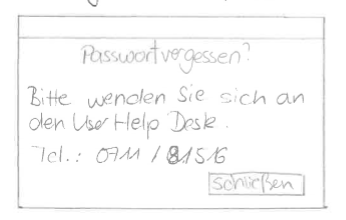 Passwort vergessen?
Bitte wenden Sie sich an
den User Help Desk.
Tel.: 0711 / 81516
schließen